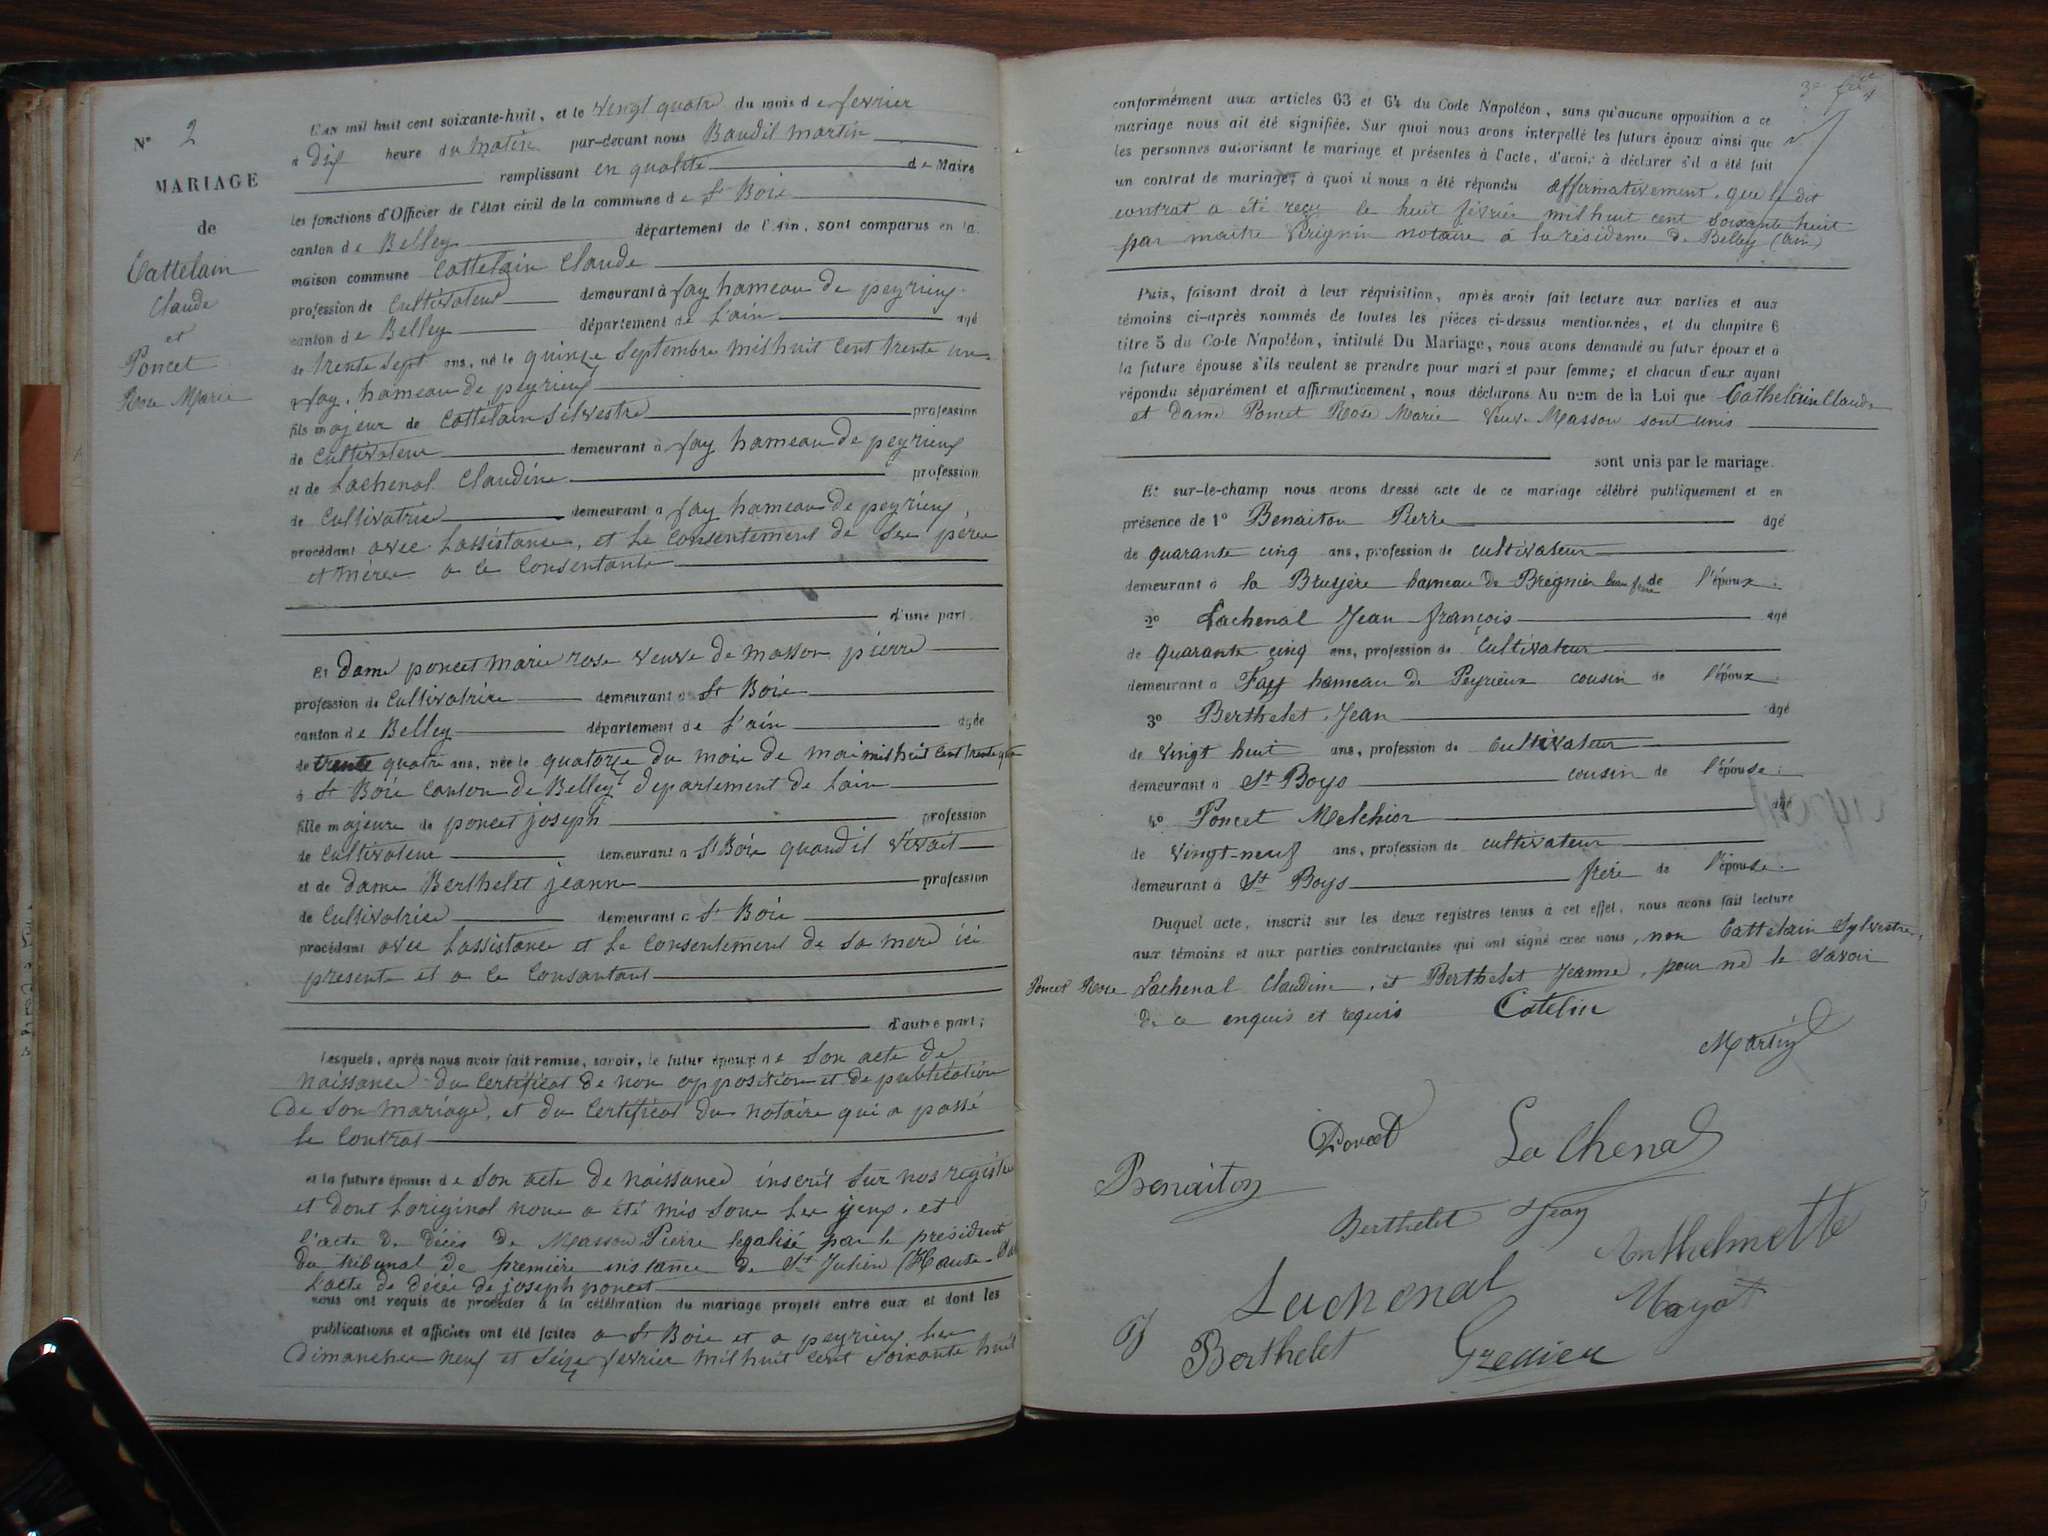 N° 2
MARIAGE
de
Cattelain
Claude
et
Poncet
Rose Marie
L'an mil huit cent soixante-huit, et le vingt quatre du mois de fevrier
à dix heure du matin par-devant nous Baudil martin
remplissant en qualité de Maire
les fonctions d'Officier de l'état civil de la commune de St Boie
canton de Belley département de l'Ain, sont comparus en la
maison commune Cattelain Claude
profession de Cultivateur demeurant à fay hameau de peyrieux
canton de Belley département de L'ain agé
de trente sept ans, né le quinze Septembre mil huit cent trente un
fay, hameau de peyrieux
fils majeur de Cattelain Silvestre profession
de Cultivateur demeurant à fay hameau de peyrieux
et de Lachenal Claudine profession
de Cultivatrice demeurant à fay hameau de peyrieux,
procédant avec Lassistance, et le Consentement de Ses père
et mère a ce Consentante
d'une part.
Et dame poncet marie rose veuve de masson pierre
profession de Cultivatrice demeurant à St Boie
canton de Belley département de L'ain agée
de trente quatre ans, née le quatorze du mois de mai mil huit Cent trente qua
à St Boie Canton de Belley département de Lain
fille majeure de poncet joseph profession
de Cultivateur demeurant à St Boie quand il vivait
et de dame Berthelet jeanne profession
de Cultivatrice demeurant à St Boie
procédant avec Lassistance et Le Consentement de Sa mere ici
presente et a ce Consantant
d'autre part;
Lesquels, après nous avoir fait remise, savoir, le futur époux de Son acte de
naissance du Certificat de non opposition et de publication
de Son mariage, et du Certificat du notaire qui a passé
Le Contrat
et la future épouse de Son acte de naissance inscrit Sur nos registre
et dont Loriginal nous a été mis Sous Les yeux, et
l'acte de décès de Masson Pierre legalisé par le président
du tribunal de première instance de St Julien (Haute-
L'acte de décès de joseph poncet
nous ont requis de procéder à la célébration du mariage projeté entre eux et dont les
publications et affiches ont été faites a St Boie et a peyrieux Les
dimanches neuf et Seize fevrier mil huit Cent Soixante huit
conformément aux articles 63 et 64 du Code Napoléon, sans qu'aucune opposition a ce
mariage nous ait été signifiée. Sur quoi nous avons interpellé les futurs époux ainsi que
les personnes autorisant le mariage et présentes à l'acte, d'avoir à déclarer s'il a été fait
un contrat de mariage; à quoi il nous a été répondu affirmativement, que le dit
contrat a été reçu le huit février mil huit cent soixante huit
par maître notaire à la résidence de Belley (Ain)
Puis, faisant droit à leur réquisition, après avoir fait lecture aux parties et aux
témoins ci-après nommés de toutes les pièces ci-dessus mentionnées, et du chapitre 6
titre 5 du Code Napoléon, intitulé Du Mariage, nous avons demandé au futur époux et à
la future épouse s'ils veulent se prendre pour mari et pour femme; et chacun d'eux ayant
répondu séparément et affirmativement, nous déclarons Au nom de la Loi que Cathelain Claude
et dame Poncet Rose Marie veuve Masson sont unis
sont unis par le mariage.
Et sur-le-champ nous avons dressé acte de ce mariage célébré publiquement et en
présence de 1° Benaiton Pierre agé
de quarante cinq ans, profession de cultivateur
demeurant à la Bruyère hameau de Brégnier beau frère de l'époux.
2° Lachenal Jean françois agé
de quarante cinq ans, profession de Cultivateur
demeurant à Fay hameau de Peyrieux cousin de l'époux
3° Berthelet Jean agé
de vingt huit ans, profession de Cultivateur
demeurant à St Boys cousin de l'épouse.
4° Poncet Melchior agé
de vingt-neuf ans, profession de cultivateur
demeurant à St Boys frère de l'épouse.
Duquel acte, inscrit sur les deux registres tenus à cet effet, nous avons fait lecture
aux témoins et aux parties contractantes qui ont signé avec nous, non Cattelain Sylvestre,
Poncet Rose Lachenal Claudine, et Berthelet Jeanne, pour ne le savoir
de ce enquis et requis Catelin
Martin
Poncet Lachenal
Benaiton
Berthelet Jean
Anthelmette
Lachenal
Mayot
Berthelet Grenier